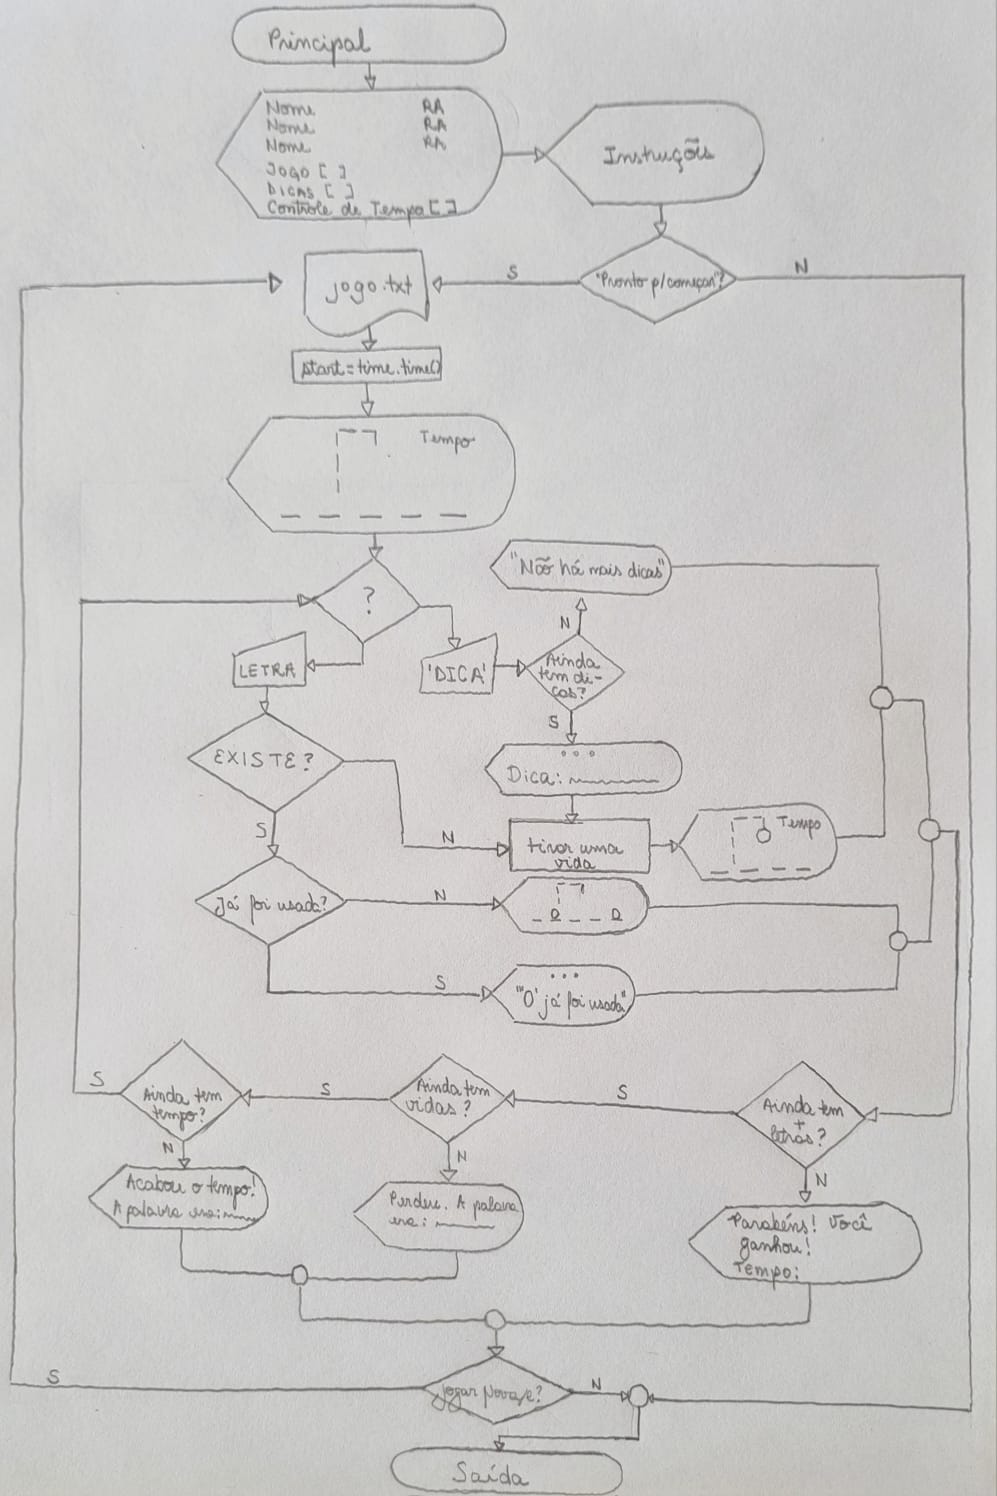 Principal
Nome RA
Nome RA
Nome RA
JOGO [ ]
DICAS [ ]
Controle de Tempo [ ]
Instruções
"Pronto p/começar"?
S
N
jogo.txt
start=time.time()
Tempo
?
"Não há mais dicas"
N
LETRA
'DICA'
Ainda
tem di-
cas?
S
EXISTE?
...
Dica:
S
N
tirar uma
vida
Tempo
Já foi usada?
N
_ O _ _ O
S
...
"'O' já foi usada"
S
Ainda tem
tempo?
S
Ainda tem
vidas?
S
Ainda tem
+
letras?
N
N
N
Acabou o tempo!
A palavra era:
Perdeu. A palavra
era:
Parabéns! Você
ganhou!
Tempo:
S
Jogar
N
Saída